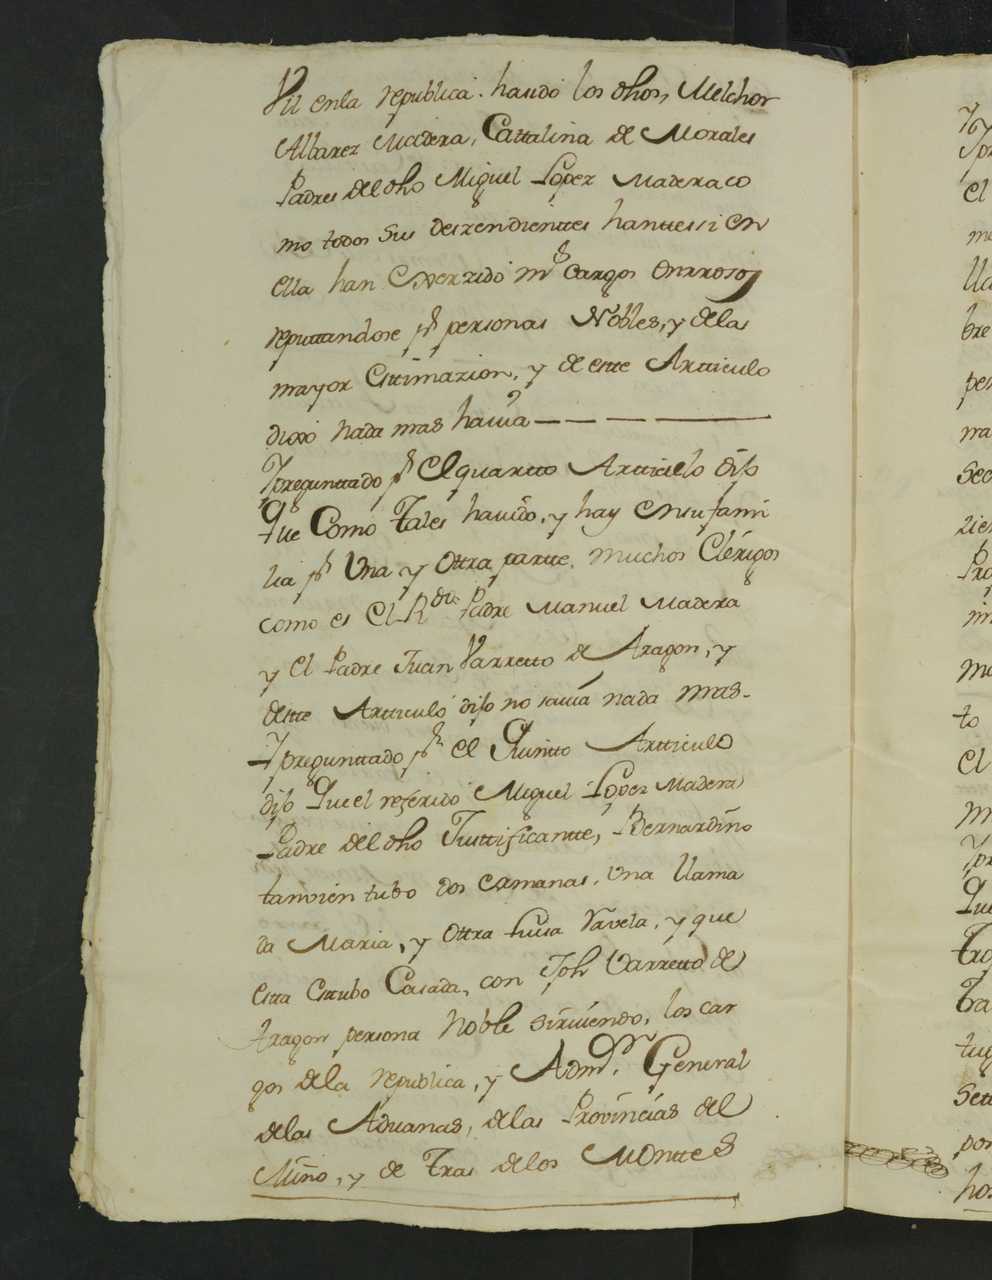 Vil enla republica. havido los dhos, Melchor
Albarez Madera, Cattalina de Morales
Padres del dho Miguel Lopez Madera co
mo todos sus deszendienttes hanttessi en
ella han Exerzido ms cargos onrrosos
reputtandose pr personas Nobles, y delas
mayor Esttimazion, y de estte Artticulo
dixo nada mas havia — — — —
Ypreguntado pr El quartto Artticulo dijo
Que Como Tales havido, y hay Ensu fami
lia pr Una y Ottra partte. muchos Clerigos
como es El Rdo Padre Manuel Madera
y El Padre Juan Varretto de Aragon, y
destte Artticulo dijo no savia nada mas-
Ypreguntado pr El Quintto Artticulo
dijo Queel referido Miguel Lopez Madera
Padre del dho Justtificantte, Bernardino
tanvien tubo dos ermanas. Una llama
da Maria, y Ottra Lucia Vavela, y que
Estta Esttubo Casada, con Joh Varretto de
Aragon persona Noble sirviendo, los car
gos dela republica, y Admor General
delas Aduanas, delas Provincias del
Miño, y de Tras delos Monttes
Y
pr
El
me
lla
bre
per
ma
Sec
zien
Pro
mo
to
El
m
Ypr
Que
Tro
Ta
tug
Sett
por
hos